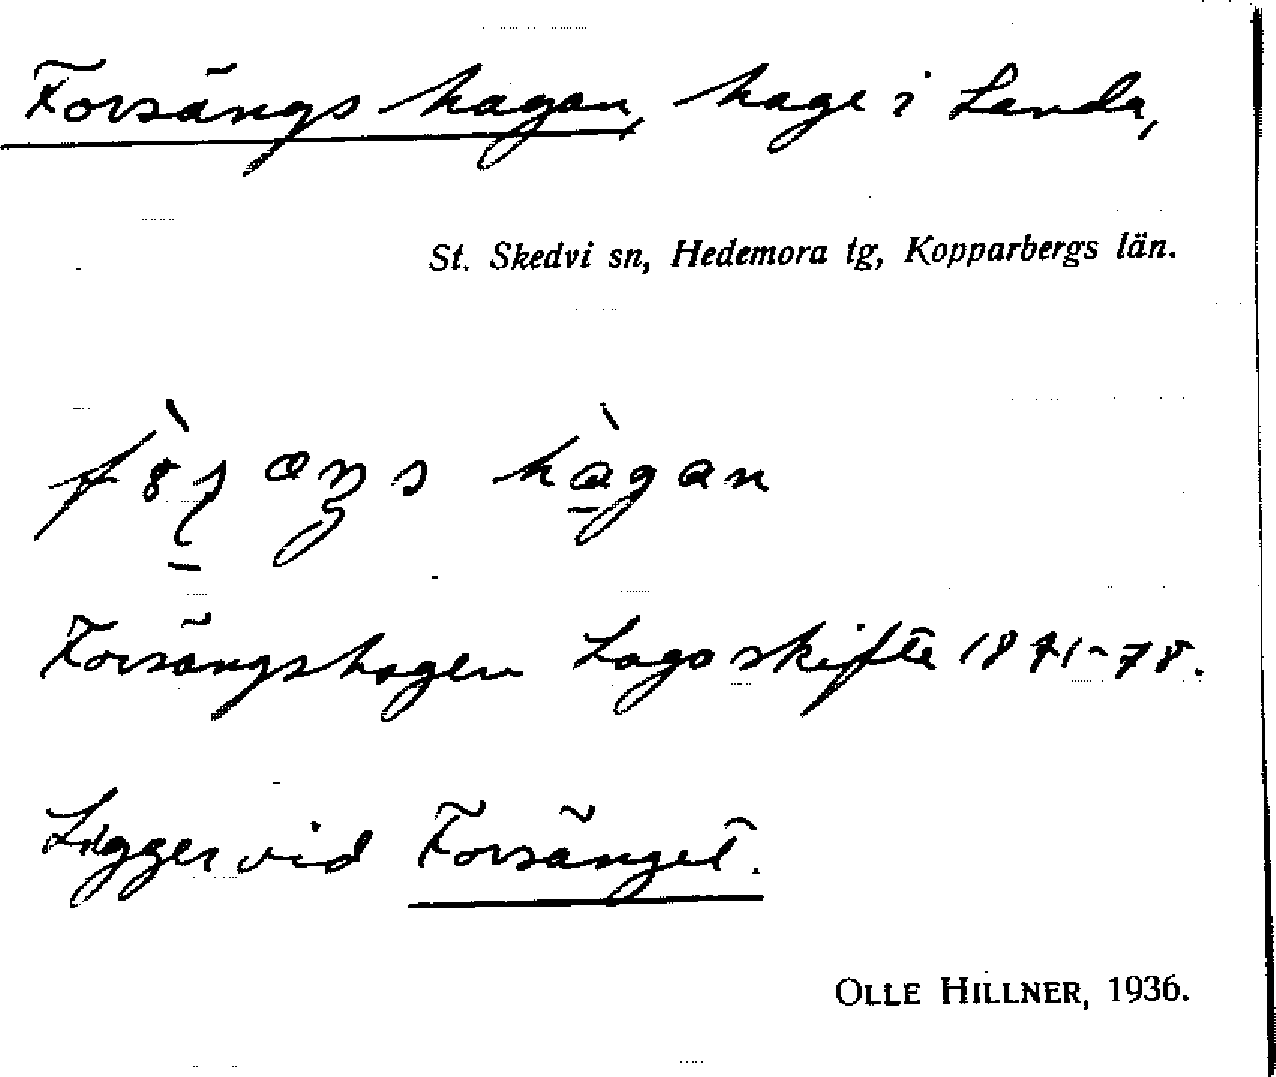 Forsängs hagan, hage i Landa,
St. Skedvi sn, Hedemora tg, Kopparbergs län.
hàgan
Forsängshagen Laga skifte 1871-78.
Ligger vid Forsänget.
OLLE HILLNER, 1936.